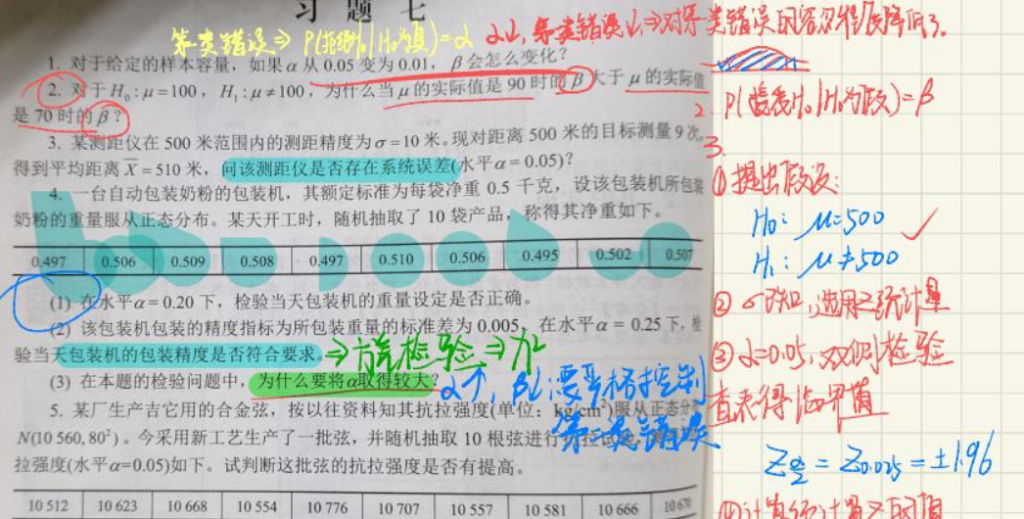 习题七
第一类错误⇒P(拒绝H₀|H₀为真)=α α↓,第一类错误↓⇒对第一类错误的容忍程度降低了.
1. 对于给定的样本容量,如果α从0.05变为0.01,β会怎么变化?
2. 对于H₀:μ=100,H₁:μ≠100,为什么当μ的实际值是90时的β大于μ的实际值
是70时的β?
3. 某测距仪在500米范围内的测距精度为σ=10米。现对距离500米的目标测量9次,
得到平均距离X̄=510米,问该测距仪是否存在系统误差(水平α=0.05)?
4. 一台自动包装奶粉的包装机,其额定标准为每袋净重0.5千克,设该包装机所包装
奶粉的重量服从正态分布。某天开工时,随机抽取了10袋产品,称得其净重如下。
0.497 0.506 0.509 0.508 0.497 0.510 0.506 0.495 0.502 0.507
(1) 在水平α=0.20下,检验当天包装机的重量设定是否正确。
(2) 该包装机包装的精度指标为所包装重量的标准差为0.005,在水平α=0.25下,检
验当天包装机的包装精度是否符合要求。⇒方差检验⇒χ²
(3) 在本题的检验问题中,为什么要将α取得较大?α↑,β↓;要严格控制
第二类错误
5. 某厂生产吉它用的合金弦,按以往资料知其抗拉强度(单位:kg/cm²)服从正态分
N(10 560,80²)。今采用新工艺生产了一批弦,并随机抽取10根弦进行抗拉试验
拉强度(水平α=0.05)如下。试判断这批弦的抗拉强度是否有提高。
10 512 10 623 10 668 10 554 10 776 10 707 10 557 10 581 10 666 10 670
2. P(接受H₀|H₀为假)=β
3.
①提出假设:
H₀: μ=500
H₁: μ≠500
②σ已知,选用Z统计量
③α=0.05,双侧检验
查表得临界值
Zα/2=Z0.025=±1.96
④计算统计量Z的值